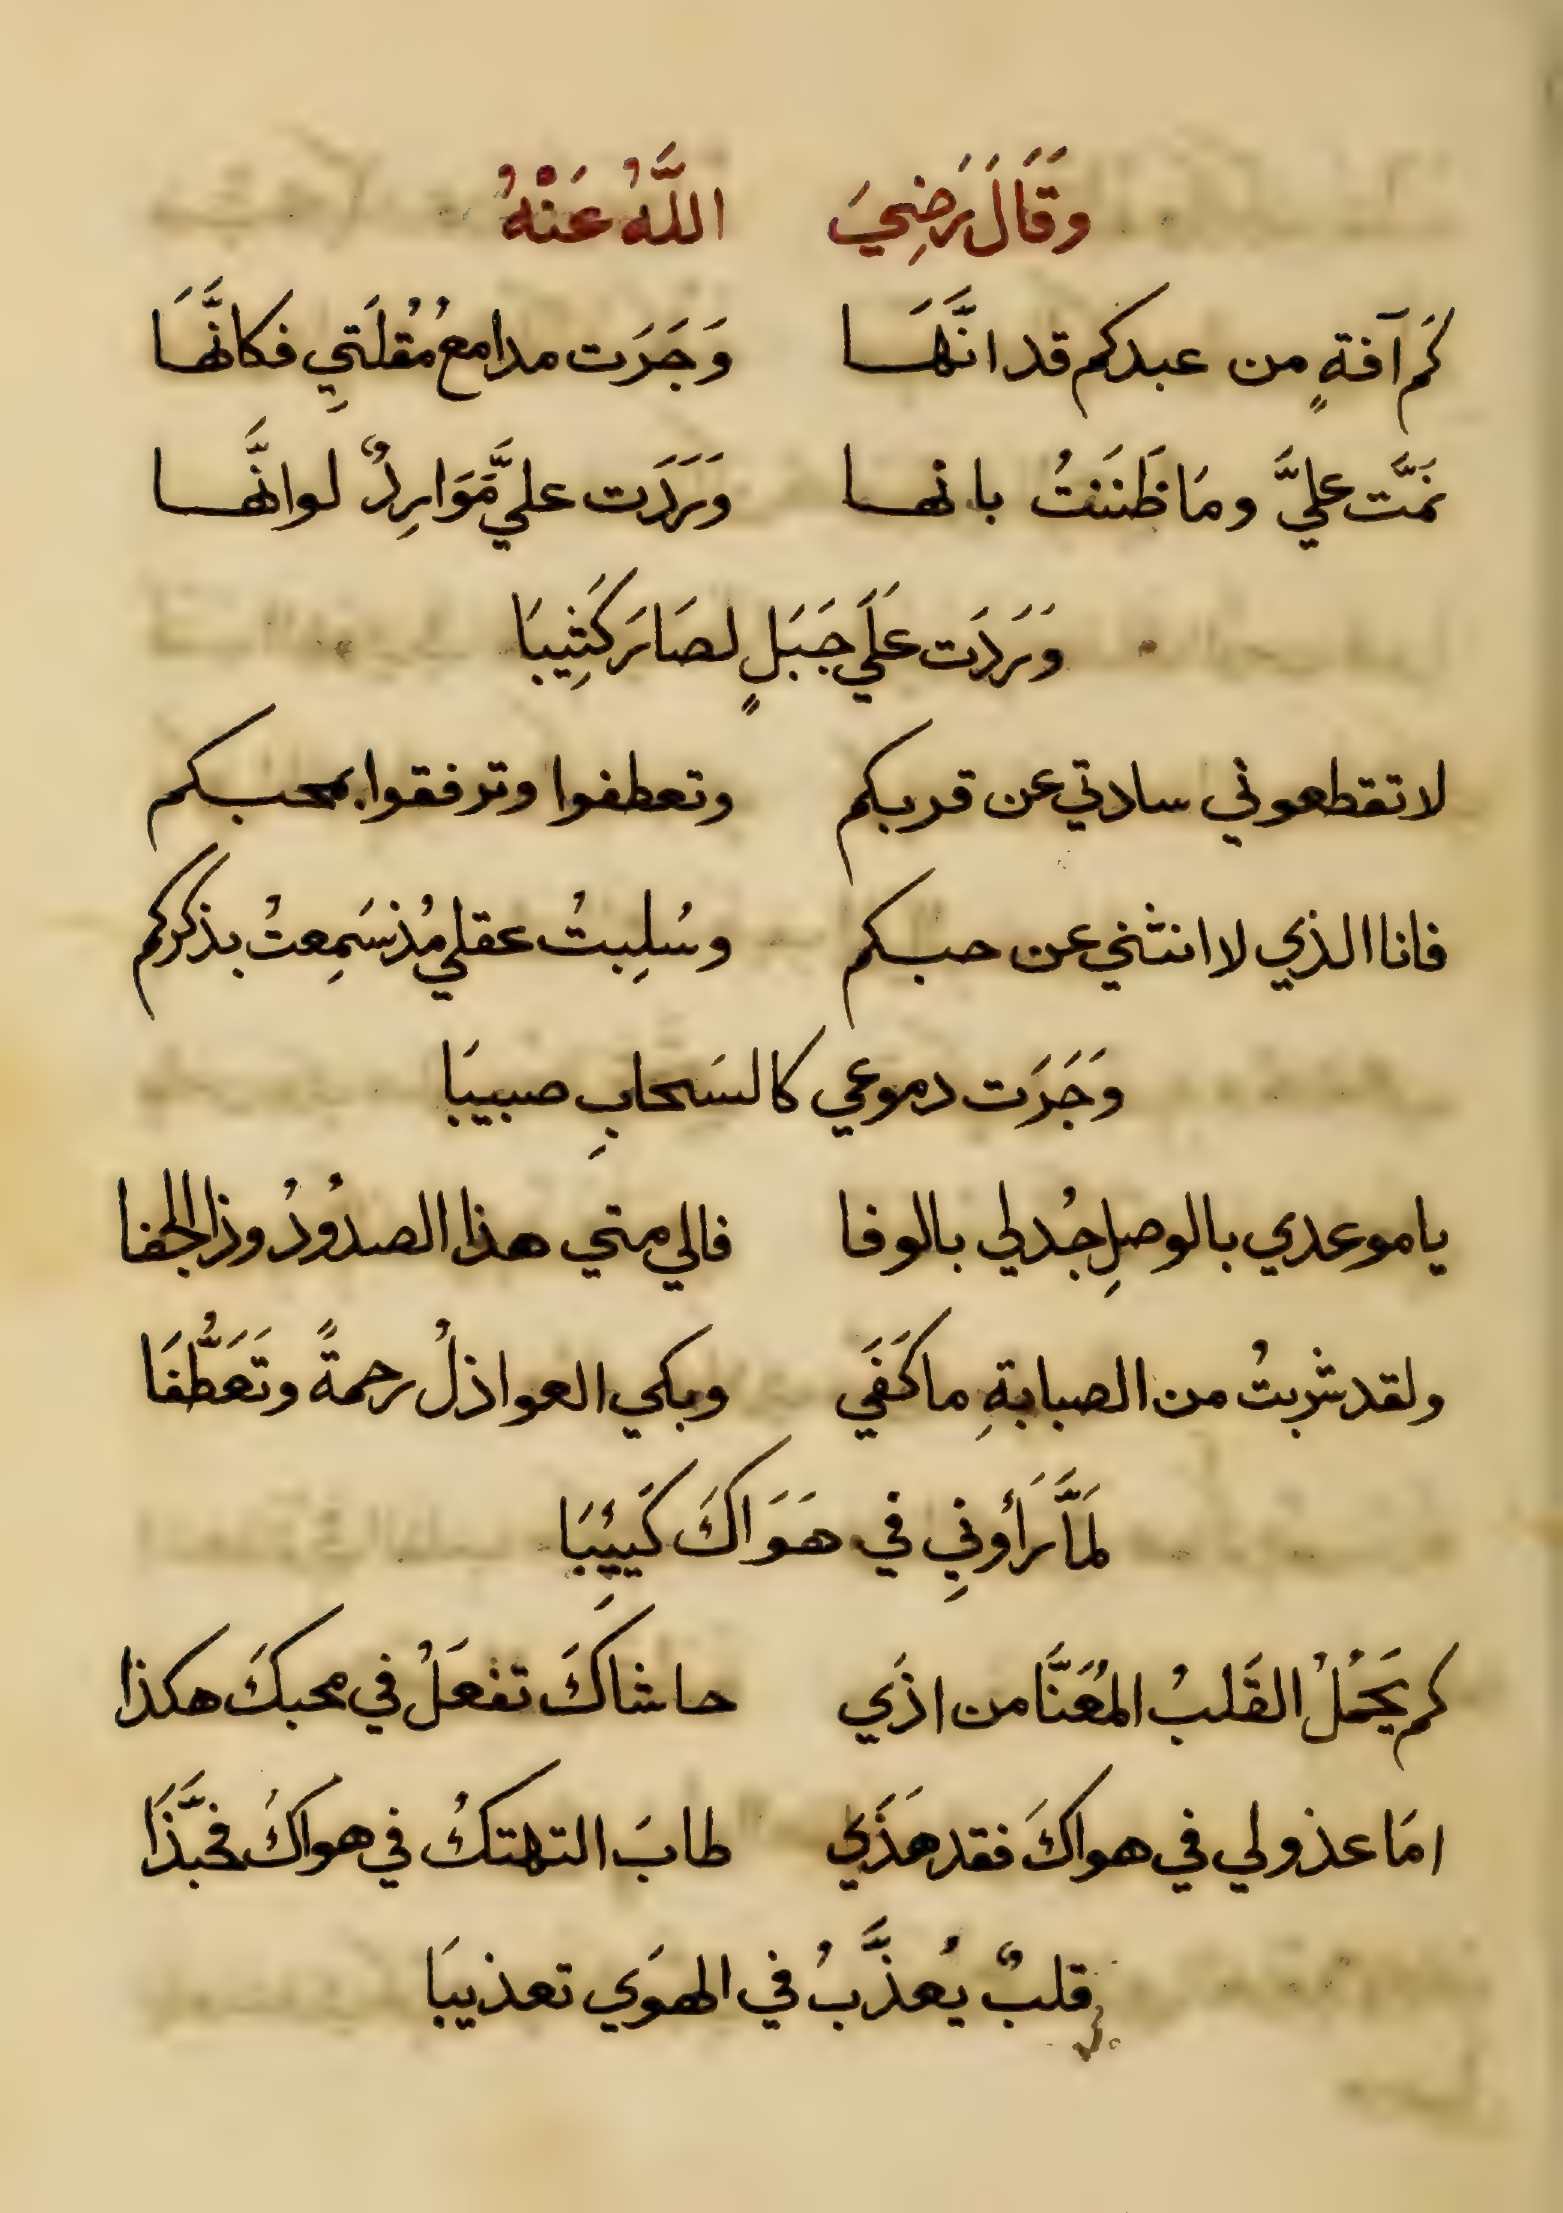 وَقَالَ رَضِيَ اللَّهُ عَنْهُ
كَم آفةٍ من عبدكم قد انَّهَا وَجَرَت مدامعُ مُقلَتيِ فكانَّهَا
نَمَّت عليَّ ومَا ظَنَنتُ بانها وَرَدَت عليَّ مَّوَارِدٌ لوانَّها
وَرَدَت عَلَي جَبَلٍ لصَارَ كَثِيبَا
لا تقطعوني سادتي عن قربكم وتعطفوا وترفقوا بمحبكم
فانا الذي لا انثني عن حبكم وسُلِبتُ عقلي مُذ سَمِعتُ بذكركم
وَجَرَت دموعي كالسَحابِ صبيبَا
يا موعدي بالوصلِ جُد لي بالوفا فالي متي هذا الصدُودُ وذا الجفا
ولقد شربتُ من الصبابةِ ما كَفَي وبكي العواذلُ رحمةً وتَعَطُّفَا
لَمَّا رَأونيِ في هَوَاكَ كَيِئبَا
كم يَحْمُلُ القَلبُ المُعَنَّا من اذَي حاشاكَ تفعَلُ في محبكَ هكذا
امَا عذولي في هواكَ فقد هَذَي طابَ التهتكُ في هواكَ فحبَّذَا
قلبٌ يُعذَّبُ في الهوَي تعذيبَا